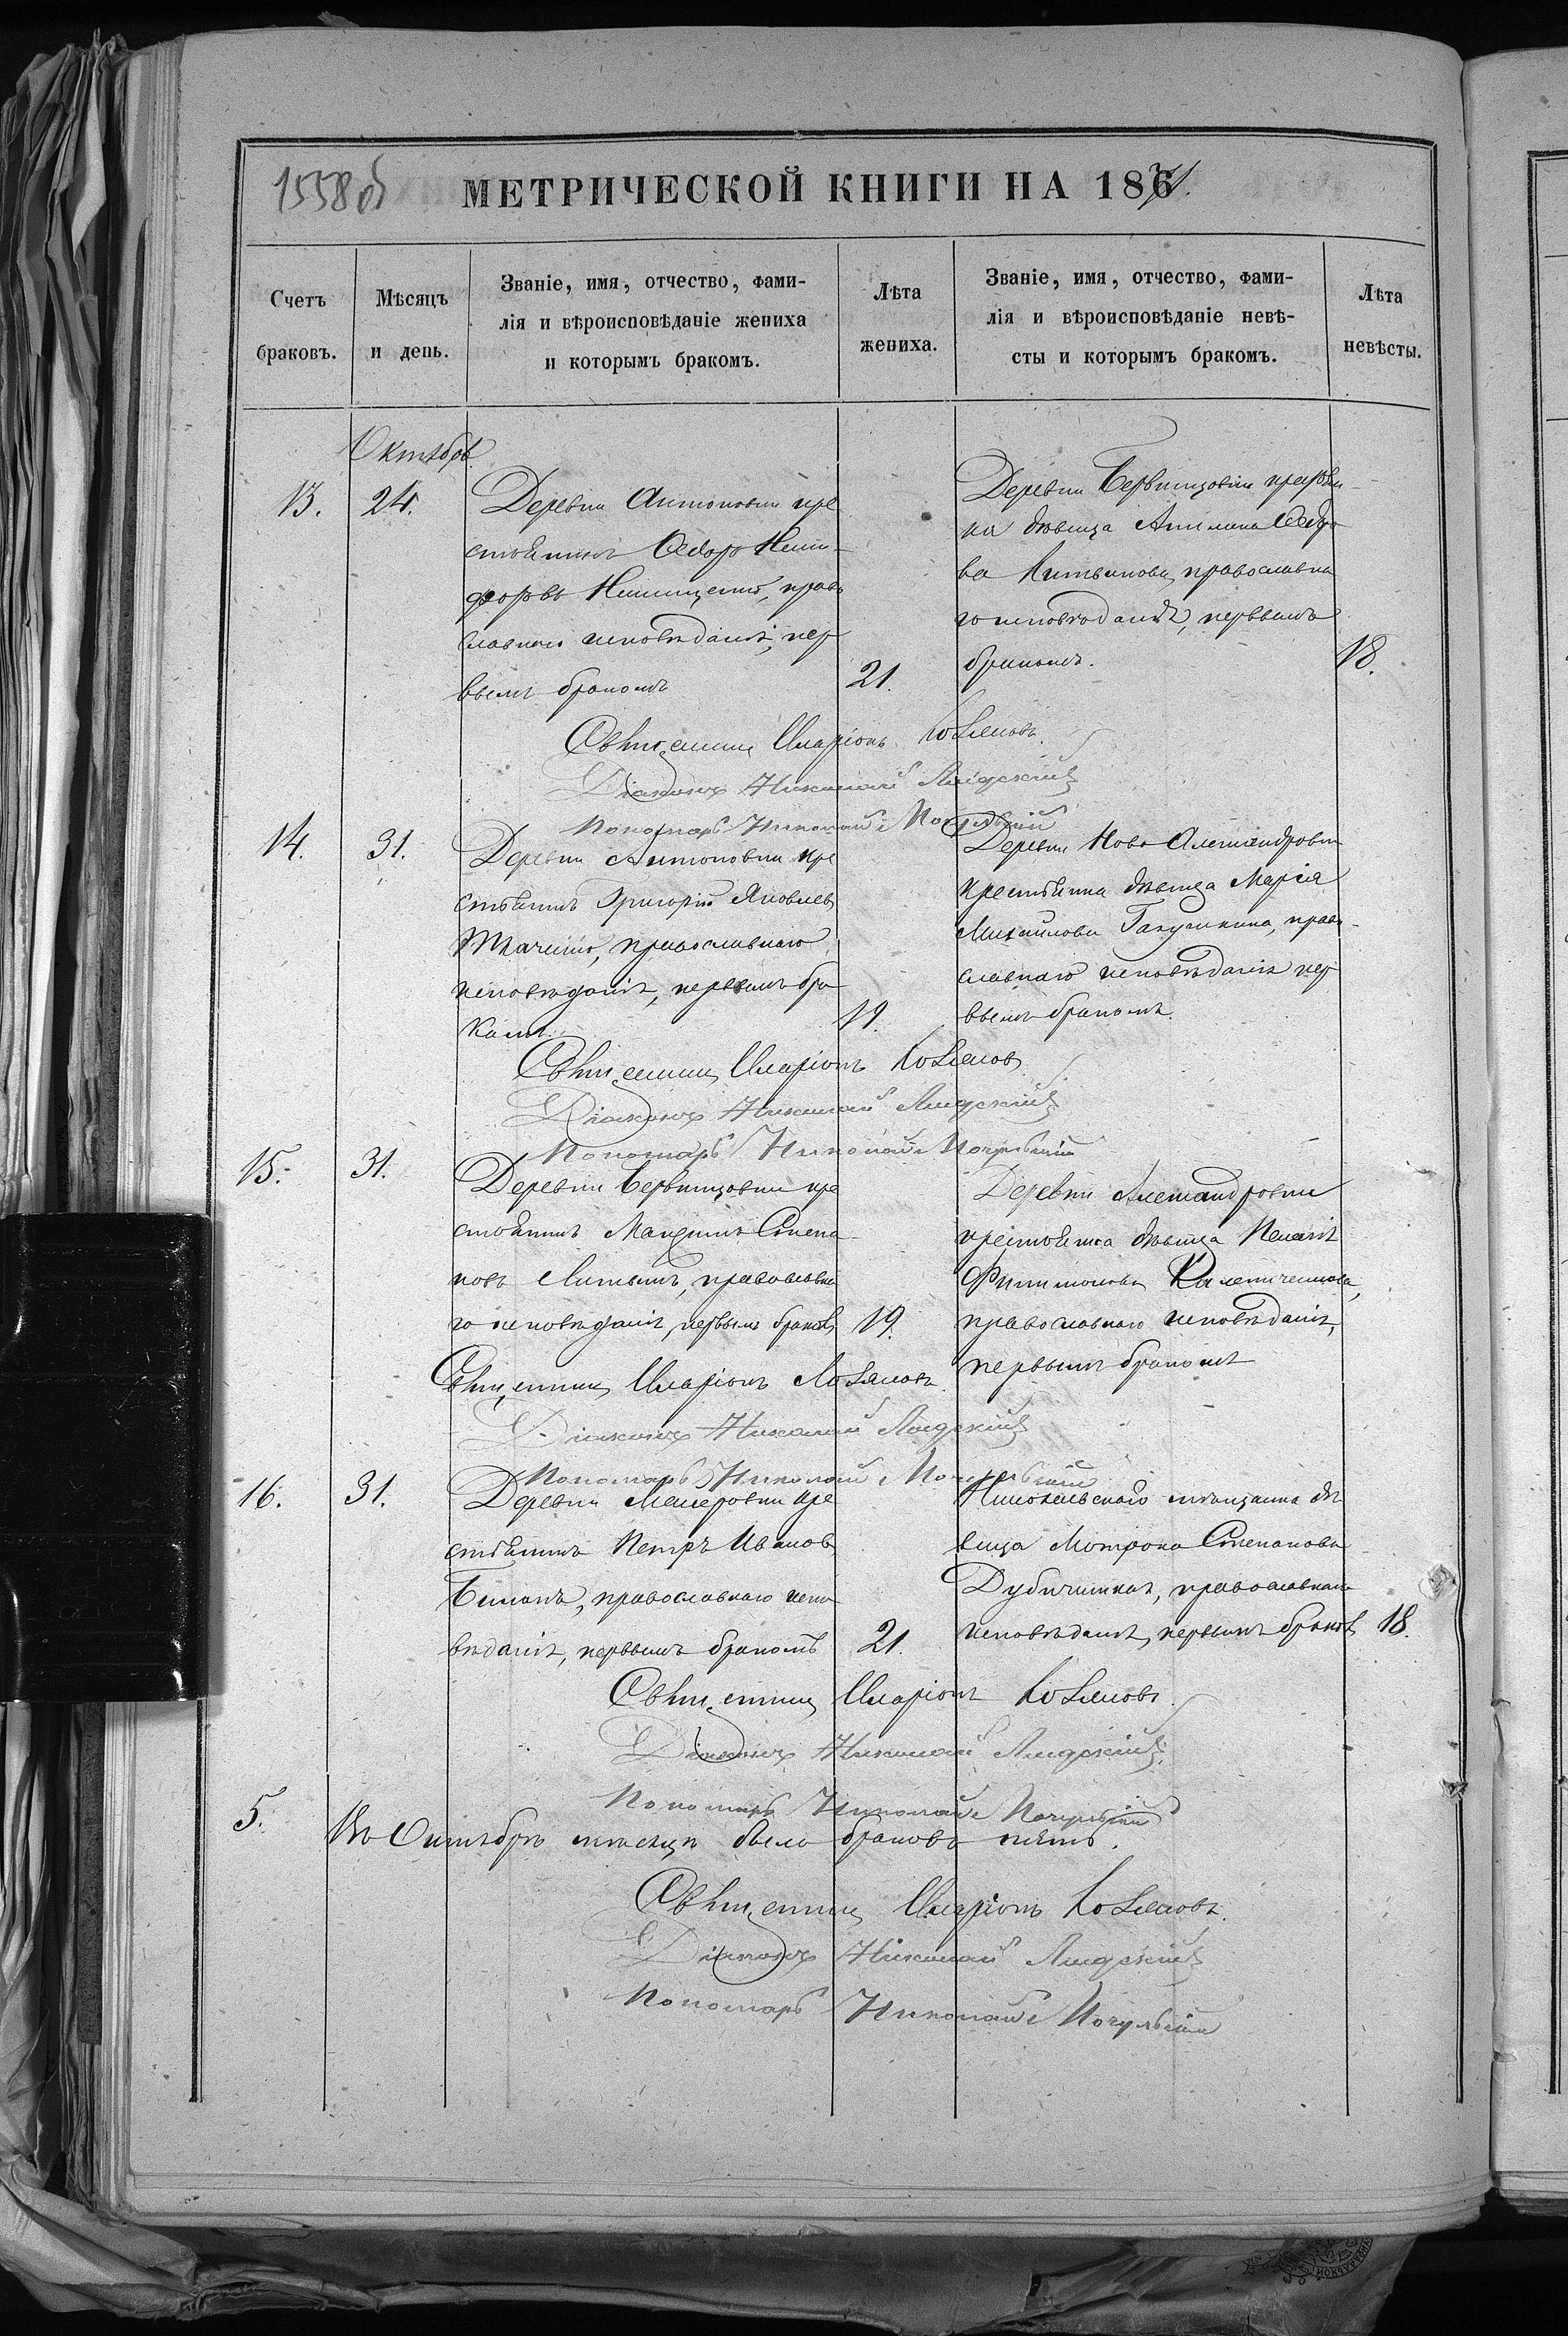 1558 об
МЕТРИЧЕСКОЙ КНИГИ НА 1871.
Счетъ браковъ.
Мѣсяцъ и день.
Званіе, имя, отчество, фами-
лія и вѣроисповѣданіе жениха
и которымъ бракомъ.
Лѣта жениха.
Званіе, имя, отчество, фами-
лія и вѣроисповѣданіе невѣ-
сты и которымъ бракомъ.
Лѣта невѣсты.
Октябрь
13.
24.
Деревни Антоновки кре
стьянинъ Ѳедоръ Ники-
форовъ православнаго исповѣданія, пер
вымъ бракомъ
21.
Деревни крестьян-
ка дѣвица Ѳедоро
ва Литвинова, православна
го исповѣданія, первымъ
бракомъ.
18.
Священникъ Иларіонъ
Діаконъ Николай Лидскій
Пономарь Николай
14.
31.
Деревни Антоновки кре
стьянинъ Григорій Яковлевъ
Ткаченко, православнаго
исповѣданія, первымъ бра
комъ.
19.
Деревни Ново Александровки
крестьянка дѣвица Марія
Михайлова Галушкина, право-
славнаго исповѣданія пер
вымъ бракомъ.
Священникъ Иларіонъ
Діаконъ Николай Лидскій
Пономарь Николай
15.
31.
Деревни кре
стьянинъ Максимъ Степа-
новъ Литвинъ, православна
го исповѣданія, первымъ бракомъ
19.
Деревни Александровки
крестьянка дѣвица Пелагія
Филимонова
православнаго исповѣданія,
первымъ бракомъ
Священникъ Иларіонъ
Діаконъ Николай Лидскій
Пономарь Николай
16.
31.
Деревни кре
стьянинъ Петръ Ивановъ
православнаго испо
вѣданія, первымъ бракомъ
21.
Никольского мѣщанка дѣ
вица Мотрона Степанова
православнаго
исповѣданія, первымъ бракомъ
18.
Священникъ Иларіонъ
Діаконъ Николай Лидскій
Пономарь Николай
5.
Въ Октябрѣ мѣсяцѣ было браковъ пять.
Священникъ Иларіонъ
Діаконъ Николай Лидскій
Пономарь Николай